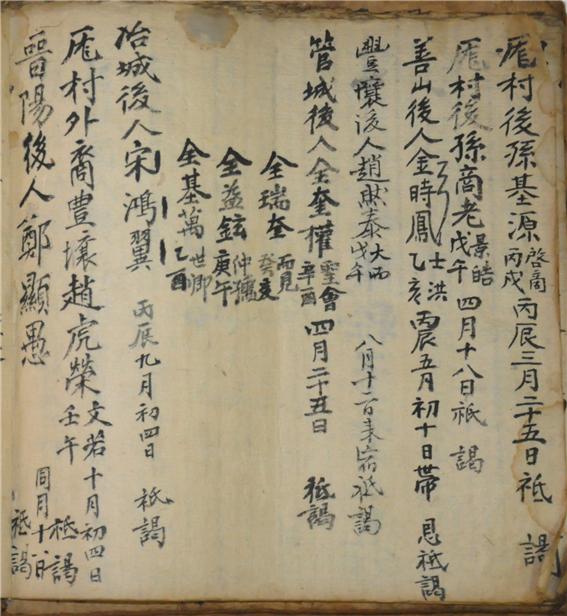 厖村後孫基源 啓商 丙戌 丙辰三月二十五日祗謁
厖村後孫商老 景皓 戊午 四月十八日祗謁
善山後人金時鳳 士洪 乙亥 丙辰五月初十日帶 恩祗謁
豐壤後人趙然泰 大而 戊午 八月十二日來宿祗謁
管城後人全奎權 聖會 辛酉 四月二十五日 祗謁
全瑞奎 而見 癸亥
全益鉉 仲 庚午
全基萬 世卿 乙酉
冶城後人宋鴻翼 丙辰九月初四日 祗謁
厖村外裔豊壤趙虎榮 文若 壬午 十月初四日 祗謁
晋陽後人鄭顯愚 同月十八日 祗謁